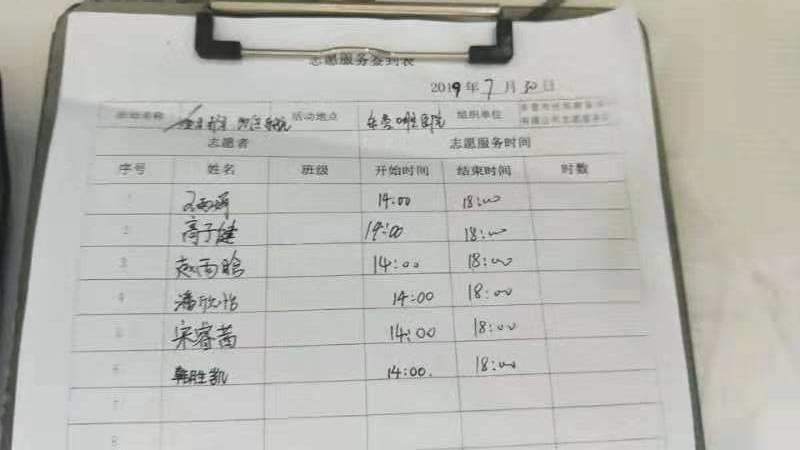 志愿服务签到表
2019年7月30日
活动名称 活动地点 组织单位
志愿者 志愿服务时间
序号 姓名 班级 开始时间 结束时间 时数
1 14:00 18:00
2 高子健 14:00 18:00
3 赵雨晗 14:00 18:00
4 潘欣怡 14:00 18:00
5 宋睿茜 14:00 18:00
6 韩胜凯 14:00. 18:00
7
8